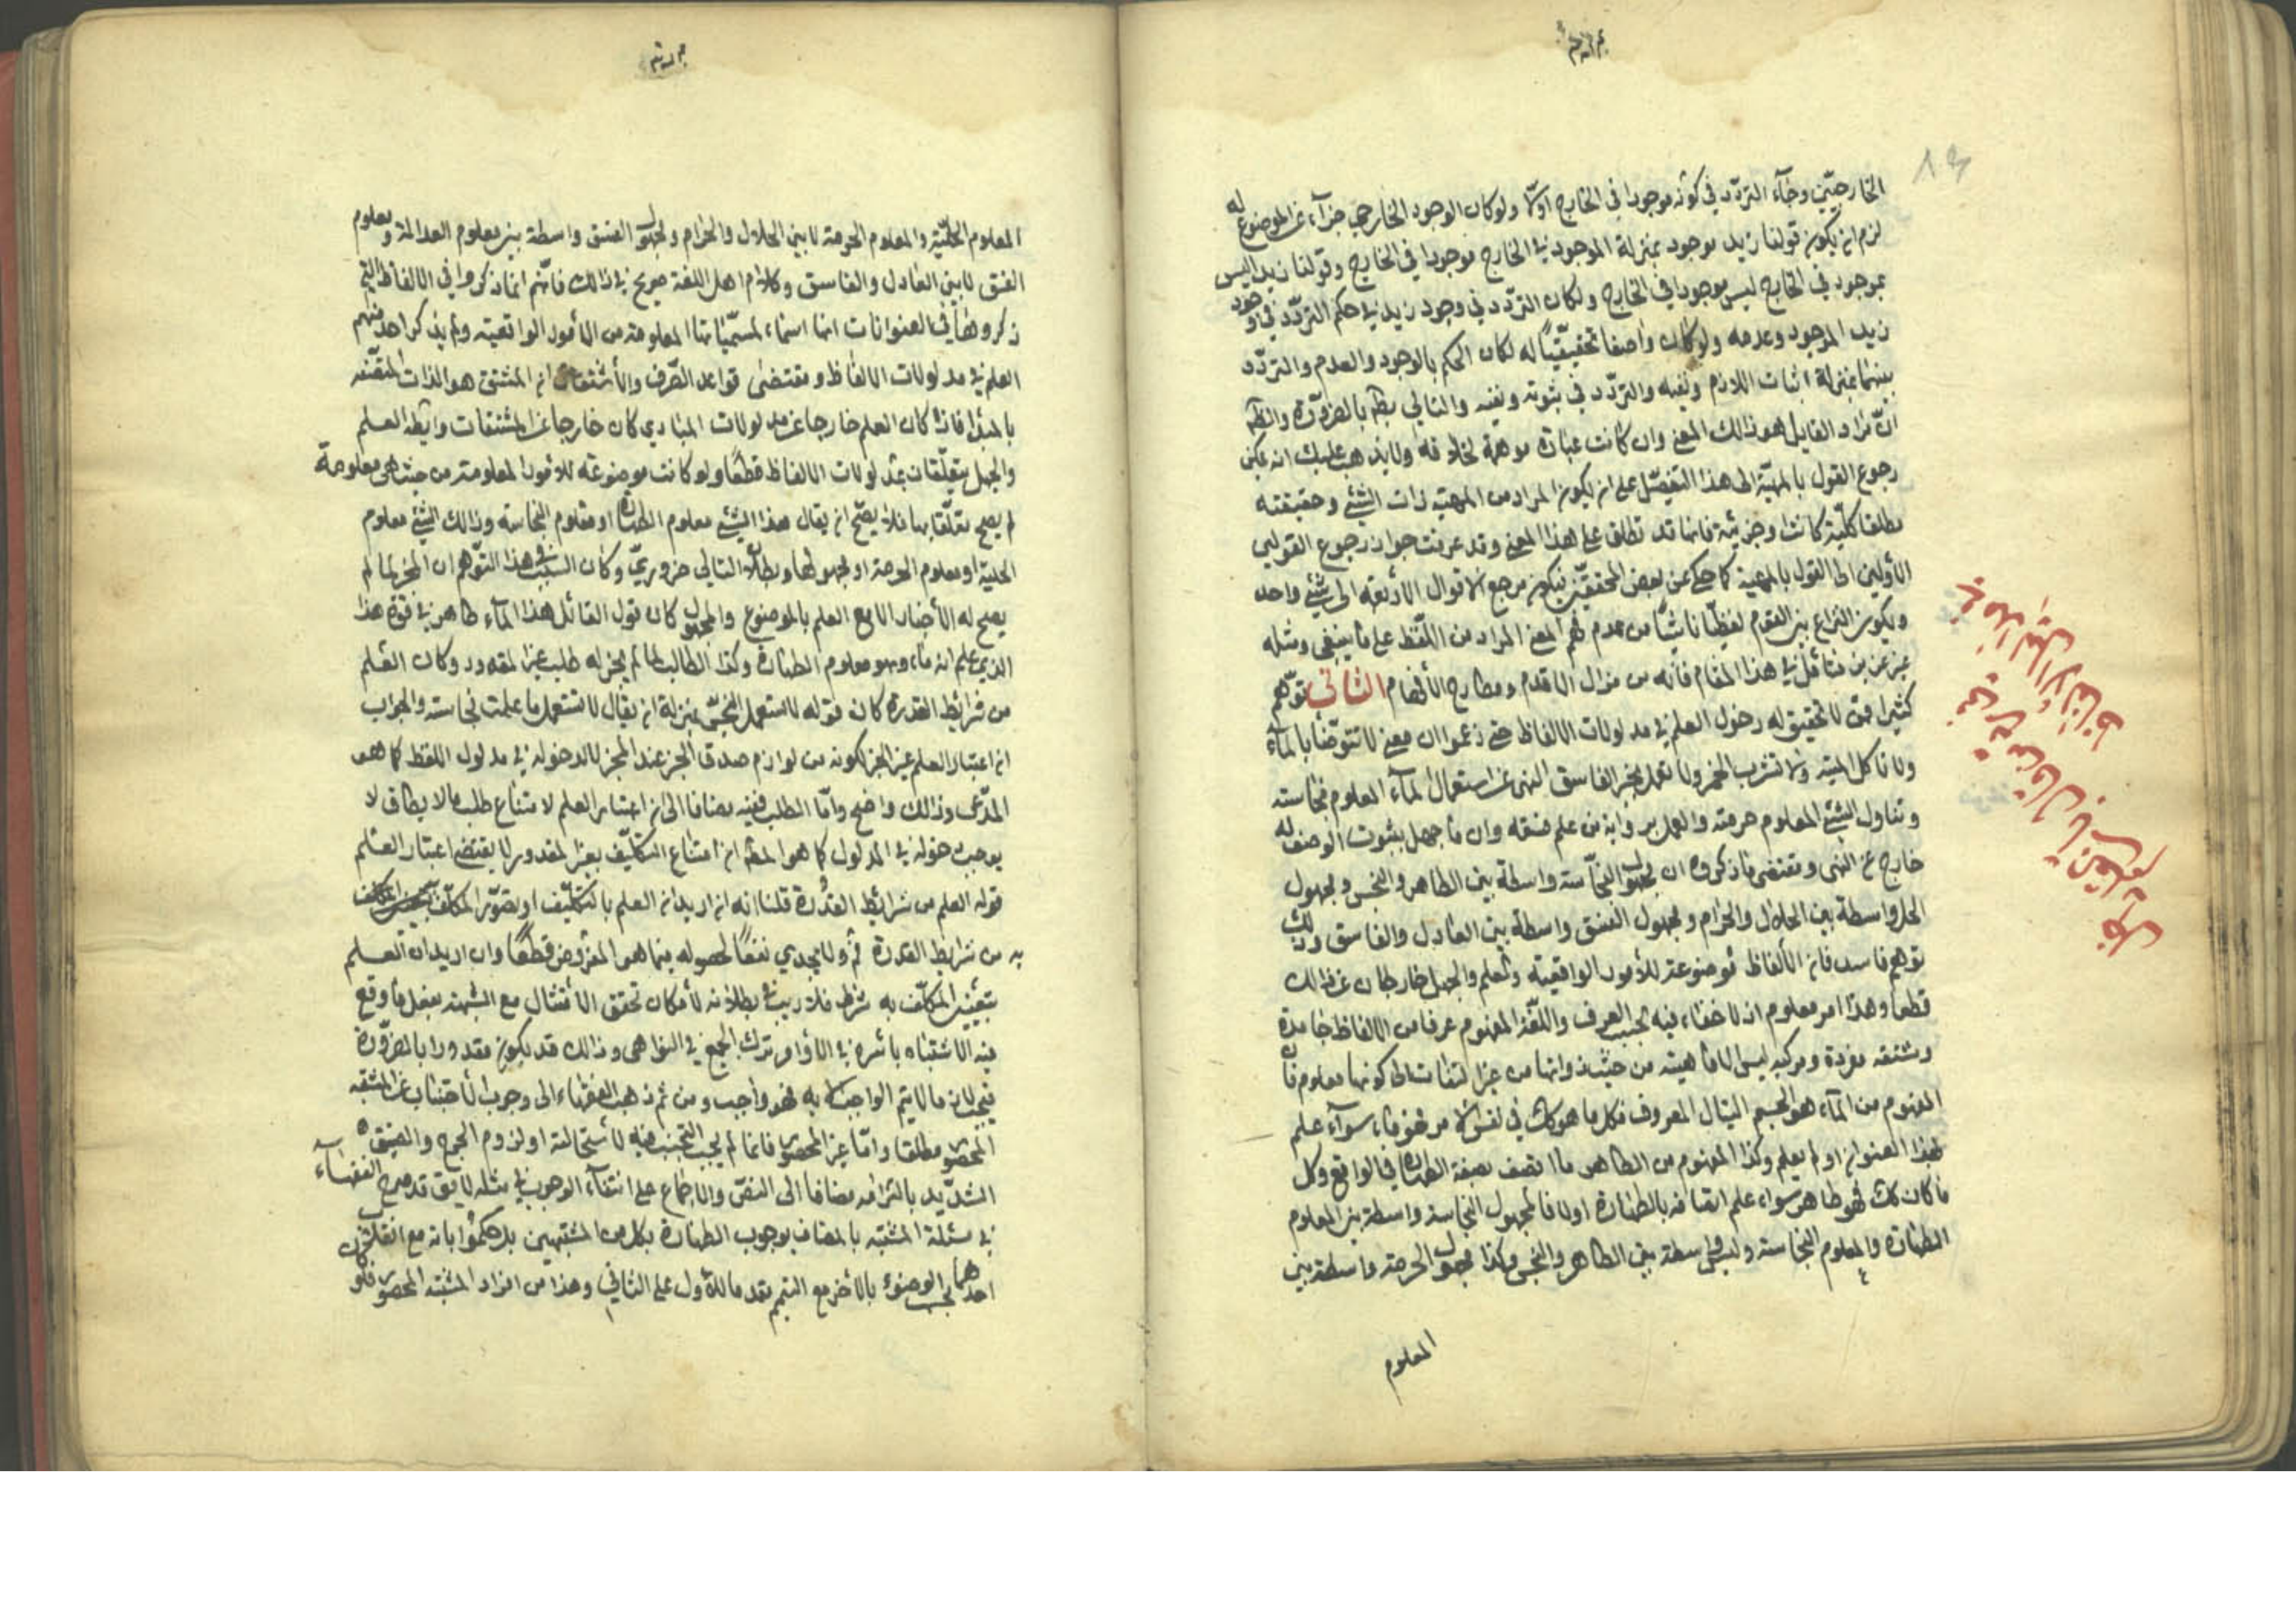 الخارجيّين وجآء التردّد في كونه موجودا في الخارج اولا ولو كان الوجود الخارجي جزآء عن الموضوع له
لزم ان يكون قولنا زيد موجود بمنزلة الموجود في الخارج موجودا في الخارج وقولنا زيد ليس
بموجود في الخارج ليس موجودا في الخارج ولكان التردّد في وجود زيد في حكم التردّد في وجود
زيد الموجود وعدمه ولو كان واصفا تحقيقيّا له لكان الحكم بالوجود والعدم والتردّد
بينهما بمنزلة اثبات اللازم ونفيه والتردّد في ثبوته ونفيه والتالي بط بالضرورة والظ
انّ مراد القايل هو ذالك المعنى وان كانت عبارة موهمة لخلافه ولا يذهب عليك انه يمكن
رجوع القول بالمهيّة الى هذا التفصيل على ان يكون المراد من المهية ذات الشئ وحقيقته
مطلقا كليّة كانت او جزئية فانها قد تطلق على هذا المعنى وقد عرفت جواز رجوع القولين
الأولين الى القول بالمهية كما حكى عن بعض المحققين فيكون مرجع الاقوال الأربعة الى شئ واحد
ويكون النزاع بين القوم لفظيّا ناشئا من عدم فهم المعنى المراد من اللّفظ على ما ينبغي ومثله
غير عزيز فتأمل في هذا المقام فانه من مزال الاقدام ومطارح الأفهام الثاني توهّم
كثير ممّن لا تحقيق له دخول العلم في مدلولات الالفاظ حتى زعموا ان معنى لا تتوضّأ بالمآء
ولا تاكل الميتة ولا تشرب الخمر ولا تعمل بخبر الفاسق النهى عن استعمال المآء المعلوم نجاسته
وتناول الشئ المعلوم حرمته والعمل برواية من علم فسقه وان ما جهل بثبوت الوصف له
خارج عن النهى ومقتضى ما ذكروه ان مجهول النجاسة واسطة بين الطاهر والنجس ومجهول
الحل واسطة بين الحلال والحرام ومجهول الفسق واسطة بين العادل والفاسق وذلك
توهم فاسد فان الألفاظ موضوعة للأمور الواقعية والعلم والجهل خارجان عن ذالك
قطعا وهذا امر معلوم اذ لا خفاء فيه بحسب العرف واللغة المفهوم عرفا من الالفاظ جامدة
ومشتقه مفردة ومركبه ليس الا ماهيته من حيث ذواتها من غير التفات الى كونها معلوم فان
المفهوم من المآء هو الجسم السّيال المعروف فكل ما هو كك في نفس الامر فهو ماء سوآء علم
بهذا العنوان او لم يعلم وكذا المفهوم من الطاهر ما اتصف بصفة الطهارة في الواقع وكل
ما كان كك فهو طاهر سواء علم اتصافه بالطهارة اولا فالمجهول النجاسة واسطة بين المعلوم
الطهارة والمعلوم النجاسة وليس واسطة بين الطاهر والنجس وكذا مجهول الحرمة واسطة بين
المعلوم
المعلوم الحليّة والمعلوم الحرمة لا بين الحلال والحرام ومجهول الفسق واسطة بين معلوم العدالة ومعلوم
الفسق لا بين العادل والفاسق وكلام اهل اللغة صريح في ذالك فانّهم انما ذكروا في الالفاظ التي
ذكروها في العنوانات انها اسماء لمسمّياتها المعلومة من الأمور الواقعية ولم يذكر احد منهم
العلم في مدلولات الالفاظ ومقتضى قواعد الصّرف والأشتقاق ان المشتق هو الذات المتّصفه
بالمبدأ فاذا كان العلم خارجا عن مدلولات المبادي كان خارجا عن المشتقات وايضا العلم
والجهل يتعلّقان بمدلولات الالفاظ قطعًا ولو كانت موضوعة للأمور المعلومة من حيث هى معلومة
لم يصح تعلّقها بها فلا يصّح ان يقال هذا الشئ معلوم الطهارة او معلوم النجاسة وذالك الشئ معلوم
الحلية او معلوم الحرمة او مجهولها وبطلان التالي ضروريّ وكان السّبب في هذا التوّهم ان المخبر لما لم
يصح له الأخبار الا مع العلم بالموضوع والمحمول كان قول القائل هذا المآء طاهر في قوة هذا
الذي علم انه ماء وهو معلوم الطهارة وكذا الطالب لما لم يجز له طلب غير المقدور وكان العلم
من شرائط القدرة كان قوله لا تستعمل النجس بمنزلة ان يقال لا تستعمل ما علمت نجاسته والجواب
ان اعتبار العلم عن الخبر لكونه من لوازم صدق الخبر عند المخبر لا لدخوله في مدلول اللفظ كما هو
المدّعى وذالك واضح وامّا الطلب ففيه مضافا الى ان اعتبار العلم لامتناع طلب ما لا يطاق لا
يوجب دخوله في المدلول كما هو المدّعى ان امتناع التكليف بغير المقدور لا يقتضى اعتبار العلم
قوله العلم من شرائط القدرة قلنا انه ان اريد انه العلم بالتكليف او بتصوّر المكلّف
به من شرايط القدرة فمّ ولا يجدي نفعًا لحصوله فيما هو المفروض قطعًا وان اريد ان العلم
بتعيين المكلّف به شرط فلا ريب في بطلانه لأمكان تحقق الأمتثال مع الشبهة بفعل ما وقع
فيه الاشتباه باسره في الأوامر وترك الجميع في النواهى وذالك قد يكون مقدورا بالضرورة
فيجب لان ما لا يتم الواجب الا به فهو واجب ومن ثم ذهب الفقهاء الى وجوب الأجتناب عن المشتبه
المحصور مطلقا وامّا غير المحصور فانما لم يجب التجنب عنه لأستحالته او لزوم الحرج والضيق
الشدّيد بالتزامه مضافا الى النصّ والاجماع على انتفآء الوجوب في مثله لا يق قد صرح الفقهآء
في مسئلة المشتبه بالمضاف بوجوب الطهارة بكل من المشتبهين بل حكموا بانه مع انقلاب
احدهما يجب الوضوء بالأخر مع التيمم تقدما للأول على الثاني وهذا من افراد المشتبه المحصور فلو كان